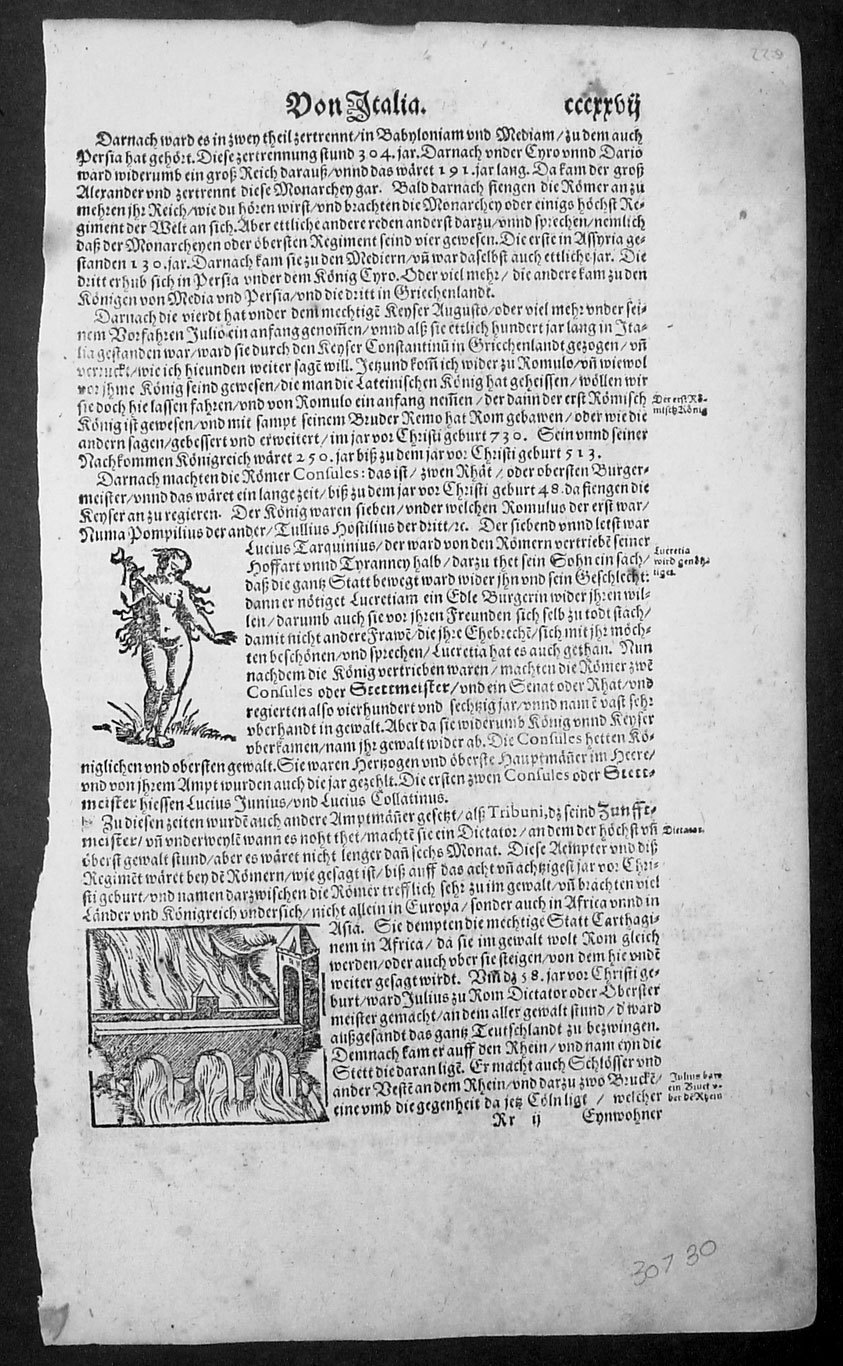 Von Italia. cccxxvij
Darnach ward es in zwey theil zertrennt/in Babyloniam vnd Mediam/zu dem auch
Persia hat gehört. Diese zertrennung stund 304. jar. Darnach vnder Cyro vnnd Dario
ward widerumb ein groß Reich darauß/vnnd das wäret 191. jar lang. Da kam der groß
Alexander vnd zertrennt diese Monarchey gar. Bald darnach fiengen die Römer an zu
mehren jhr Reich/wie du hören wirst/vnd brachten die Monarchey oder einigs höchst Re-
giment der Welt an sich. Aber ettliche andere reden anderst darzu/vnnd sprechen/nemlich
daß der Monarcheyen oder öbersten Regiment seind vier gewesen. Die erste in Assyria ge-
standen 130. jar. Darnach kam sie zu den Mediern/vñ war daselbst auch ettliche jar. Die
dritt erhub sich in Persia vnder dem König Cyro. Oder viel mehr/ die andere kam zu den
Königen von Media vnd Persia/vnd die dritt in Griechenlandt.
Darnach die vierdt hat vnder dem mechtigē Keyser Augusto/oder viel mehr vnder sei-
nem Vorfahren Julio ein anfang genom̃en/vnnd alß sie ettlich hundert jar lang in Ita-
lia gestanden war/ward sie durch den Keyser Constantinū in Griechenlandt gezogen/vñ
verruckt/wie ich hieunden weiter sagē will. Jetzund kom̃ ich wider zu Romulo/vñ wiewol
vor jhme König seind gewesen/die man die Lateinischen König hat geheissen/wöllen wir
sie doch hie lassen fahren/vnd von Romulo ein anfang nem̃en/der dann der erst Römisch
König ist gewesen/vnd mit sampt seinem Bruder Remo hat Rom gebawen/oder wie die
andern sagen/gebessert vnd erweitert/im jar vor Christi geburt 730. Sein vnnd seiner
Nachkommen Königreich wäret 250. jar biß zu dem jar vor Christi geburt 513.
Der erst Rö-
misch König
Darnach machten die Römer Consules: das ist/zwen Rhät/oder obersten Burger-
meister/vnnd das wäret ein lange zeit/biß zu dem jar vor Christi geburt 48. da fiengen die
Keyser an zu regieren. Der König waren sieben/vnder welchen Romulus der erst war/
Numa Pompilius der ander/Tullius Hostilius der dritt/rc. Der siebend vnnd letst war
Lucius Tarquinius/der ward von den Römern vertriebē seiner
Hoffart vnnd Tyranney halb/darzu thet sein Sohn ein sach/
daß die gantz Statt bewegt ward wider jhn vnd sein Geschlecht:
dann er nötiget Lucretiam ein Edle Burgerin wider jhren wil-
len/darumb auch sie vor jhren Freunden sich selb zu todt stach/
damit nicht andere Frawē/die jhre Ehe brechē/sich mit jhr möch-
ten beschönen/vnd sprechen/Lucretia hat es auch gethan. Nun
nachdem die König vertrieben waren/machten die Römer zwē
Consules oder Stettmeister/vnd ein Senat oder Rhat/vnd
regierten also vierhundert vnd sechtzig jar/vnnd nam ē vast sehr
vberhandt in gewalt. Aber da sie widerumb König vnnd Keyser
vberkamen/nam jhr gewalt wider ab. Die Consules hetten Kö-
niglichen vnd obersten gewalt. Sie waren Hertzogen vnd öberste Hauptmäñer im Heere/
vnd von jhrem Ampt wurden auch die jar gezehlt. Die ersten zwen Consules oder Stett-
meister hiessen Lucius Junius/vnd Lucius Collatinus.
Lucretia
wird genötz-
tiget
Zu diesen zeiten wurdē auch andere Amptmäñer gesetzt/alß Tribuni, dz seind Zunfft-
meister/vñ vnderweylē wann es noht thet/machtē sie ein Dictator/an dem der höchst vñ
öberst gewalt stund/aber es wäret nicht lenger dañ sechs Monat. Diese Aempter vnd diß
Regimēt wäret bey dē Römern/wie gesagt ist/biß auff das acht vñ achtzigest jar vor Chri-
sti geburt/vnd namen darzwischen die Römer trefflich sehr zu im gewalt/vñ brachten viel
Länder vnd Königreich vndersich/nicht allein in Europa/sonder auch in Africa vnnd in
Asia. Sie dempten die mechtige Statt Carthagi-
nem in Africa/da sie im gewalt wolt Rom gleich
werden/oder auch vber sie steigen/von dem hie vndē
weiter gesagt wirdt. Vm̃ dz 58. jar vor Christi ge-
burt/ward Julius zu Rom Dictator oder Oberster
meister gemacht/an dem aller gewalt stund/d' ward
außgesandt das gantz Teutschlandt zu bezwingen.
Demnach kam er auff den Rhein/vnd nam eyn die
Stett die daran ligē. Er macht auch Schlösser vnd
ander Vestē an dem Rhein/vnd darzu zwo Bruckē/
eine vmb die gegenheit da jetz Cöln ligt/ welcher
Dictator
Julius bawt
ein Bruck v-
ber dē Rhein
Rr ij Eynwohner
307 30